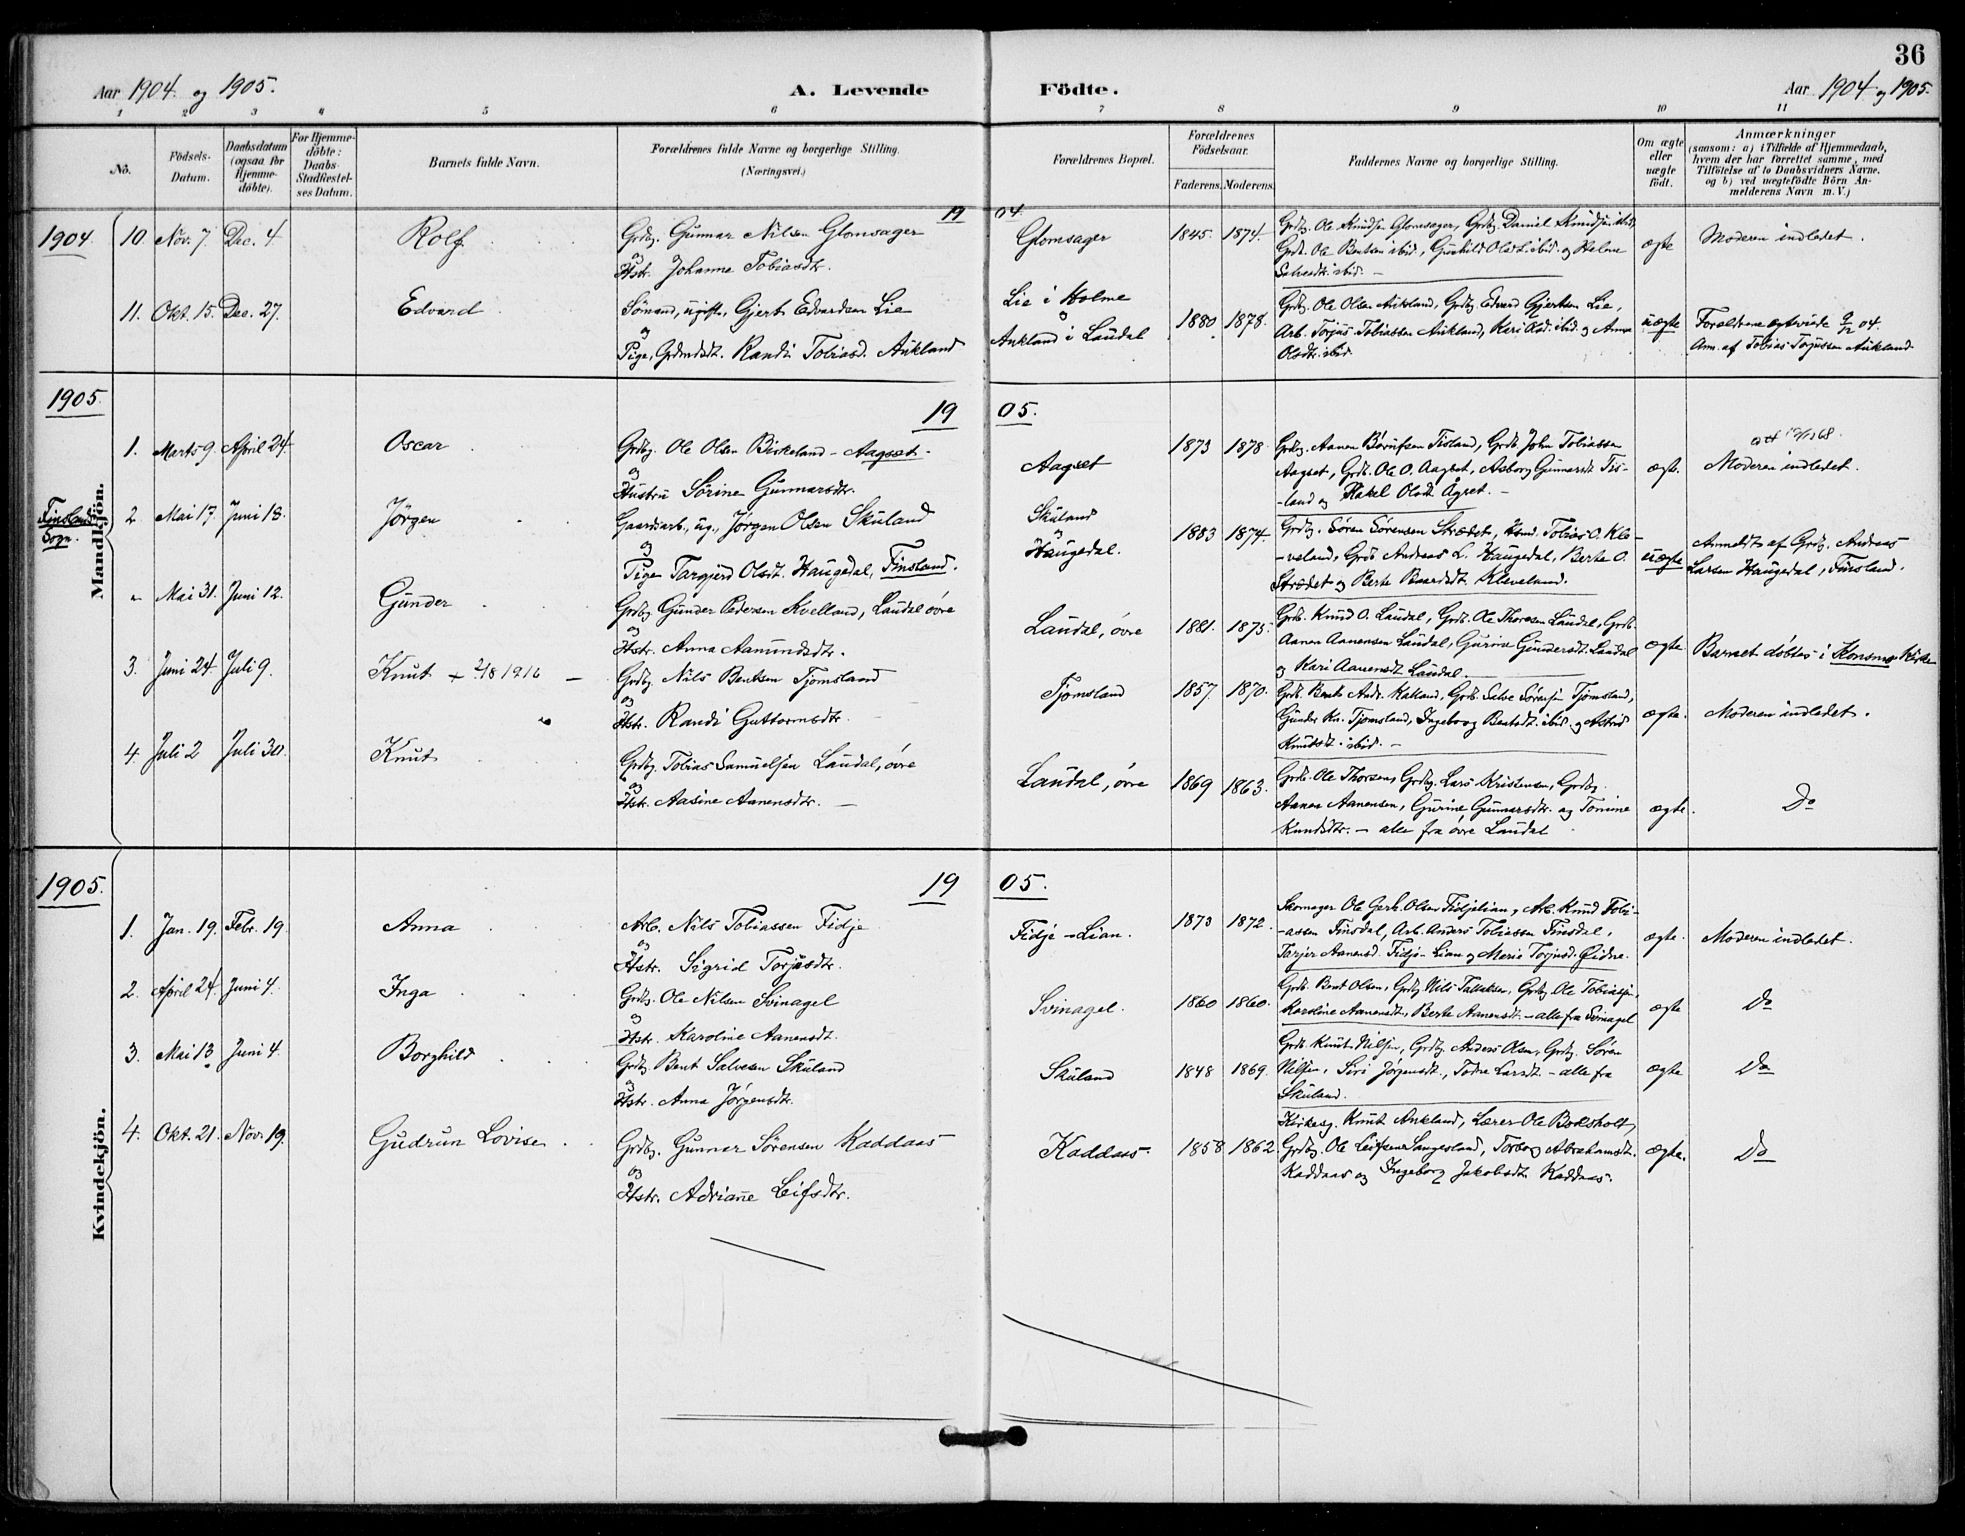 36
Aar 1904. og 1905.
A. Levende Födte.
Aar 1904 og 1905.
1 2 3 4 5 6 7 8 9 10 11
No.
Födsels-
Datum.
Daabsdatum
(ogsaa for
Hjemme-
döbte).
For Hjemme-
döbte:
Daabs-
Stadfæstel-
ses Datum.
Barnets fulde Navn.
Forældrenes fulde Navne og borgerlige Stilling.
(Næringsvei.)
Forældrenes Bopæl.
Forældrenes
Födselsaar.
Faderens. Moderens.
Faddernes Navne og borgerlige Stilling.
Om ægte
eller
uægte
födt.
Anmærkninger
(saasom: a) i Tilfælde af Hjemmedaab,
hvem der har forrettet samme, med
Tilföielse af to Daabsvidners Navne,
og b) ved uægtefödte Börn An-
melderens Navn m. V.)
Mandkjön.
1904
19 04.
10. Nov. 7 Dec. 4
Rolf
Grdbg. Gunnar Nilsen Glomsager
og
Hstr. Johanne Tobiasdtr.
Glomsager
1845. 1874.
Grdbg. Ole Knudsen Glomsager, Grdbg. Daniel Knudsen ibid,
Grdb. Ole Bentsen ibid., Gunhild Olsdt. ibid. og Helene
Salvesdt. ibid. —
ægte
Moderen indledet.
11. Okt. 15. Dec. 27.
Edvard
Sömand, ugift, Gjert Edvardsen Lie
og
Pige, Grdmdsdt. Randi Tobiasd. Aukland
Lie i Holme
og
Aukland i Laudal
1880 1878.
Grdbg. Ole Olsen Aukland, Grdbg Edvard Gjertsen Lie,
Arb. Torjus Tobiassen Aukland, Keri Olsd. ibid. og Anna
Olsdtr. ibid.
uægte
Forældrene ægteviede 9/12 04.
Anm. af Tobias Torjussen Aukland
1905.
19 05.
Finslands
Sogn.
1. Marts 9. April 24.
Oscar
Grdbg. Ole Olsen Birkeland - Aagset -
og
Hustru Sörine Gunnarsdtr.
Aagset
1873 1878.
Grdbg. Aanen Börufsen Tisland, Grdb John Tobiassen
Aagset, Grdb. Ole O. Aagset, Asborg Gunnarsdt Tis-
-land og Rakel Olsdt Ågset. —
ægte.
Moderen indledet.
2. Mai 17. Juni 18.
Jörgen
Gaardarb., ug., Jörgen Olsen Skuland
og
Pigen Targjerd Olsdt. Haugedal, Finsland.
Skuland
og
Haugedal.
1883 1874.
Grdbg. Sören Sörensen Strædet, Hsmd. Tobias O. Kle-
-veland, Grdb Andreas L. Haugedal, Berte O.
Strædet og Berte Baardsdt. Kleveland.
uægte
Anmeldt af Grdbg. Andreas
Larsen Haugedal, Finsland.
" Mai 31. Juni 12.
Gunder
Grdbg Gunder Pedersen Kvelland, Laudal övre
og
Hstr. Anna Aamundsdtr.
Laudal, övre
1881. 1875.
Grdb. Knud O. Laudal, Grdb. Ole Thorsen Laudal, Grdb.
Aanen Aanensen Laudal, Gurine Gundersdt. Laudal
og Kari Aanensdt Laudal.
ægte
Barnet döbtes i Konsmo Kirke
3. Juni 24. Juli 9.
Knut + 2/8 1916 —
Grdbg Nils Bentsen Tjomsland
og
Hstr. Randi Guttormsdtr.
Tjomsland
1857. 1870.
Grdb Bent Andr. Hatland, Grdb. Salve Sörensen Tjomsland,
Gunder Kn. Tjomsland, Ingeborg Bentsdt. ibid. og Astrid
Knutsdt. ibid. —
ægte.
Moderen indledet.
4. Juli 2 Juli 30.
Knut
Grdbg. Tobias Samuelsen Laudal, övre
og
Hstr. Aasine Aanensdtr. —
Laudal, övre
1869 1863.
Grdb. Ole Thorsen, Grdbg. Lars Kristensen, Grdbg.
Aanen Aanensen, Gurine Gunnarsdtr. og Tomine
Knudsdtr. — alle fra övre Laudal
ægte.
Do
Kvindekjön.
1905.
19 05.
1. Jan. 19. Febr. 19.
Anna
Arb. Nils Tobiassen Fidje
og
Hstr. Sigrid Torjusdtr.
Fidje - Lian.
1873 1872.
Skomager Ole Gerh. Olsen Fidjelian, Arb. Knud Tobi-
-assen Finsdal, Arb. Anders Tobiassen Finsdal,
Tarjer Aanensd. Fidje-Lian og Marie Torjusd. Eidne.
ægte.
Moderen indledet.
2. April 24. Juni 4.
Inga
Grdbg. Ole Nilsen Svinagel
og
Hstr. Karoline Aanensdt.
Svinagel.
1860 1860.
Grdb. Bent Olsen, Grdbg Nils Tallaksen, Grdbg Ole Tobiassen,
Karoline Aanensdt, Berte Aanensdt. — alle fra Svinagel
ægte
Do
3. Mai 13 Juni 4.
Borghild
Grdbg. Bent Salvesen Skuland
og
Hstr. Anna Jörgensdtr.
Skuland
1848 1869.
Grdb Knut Nilsen, Grdbg. Anders Olsen, Grdbg. Sören
Nilsen, Siri Jörgensdt., Todne Larsdt. — alle fra
Skuland.
ægte
Do
4. Okt. 21. Nov. 19.
Gudrun Lovise
Grdbg. Gunnar Sörensen Kaddaas
og
Hstr. Adriane Leifsdtr.
Kaddaas.
1858 1862
Kirkesg. Knut Aukland, Lærer Ole Boksholt,
Grdbg. Ole Leifsen Sangesland, Torborg Abrahamsdt.
Kaddaas og Ingeborg Jakobsdt Kaddaas.
ægte.
Do